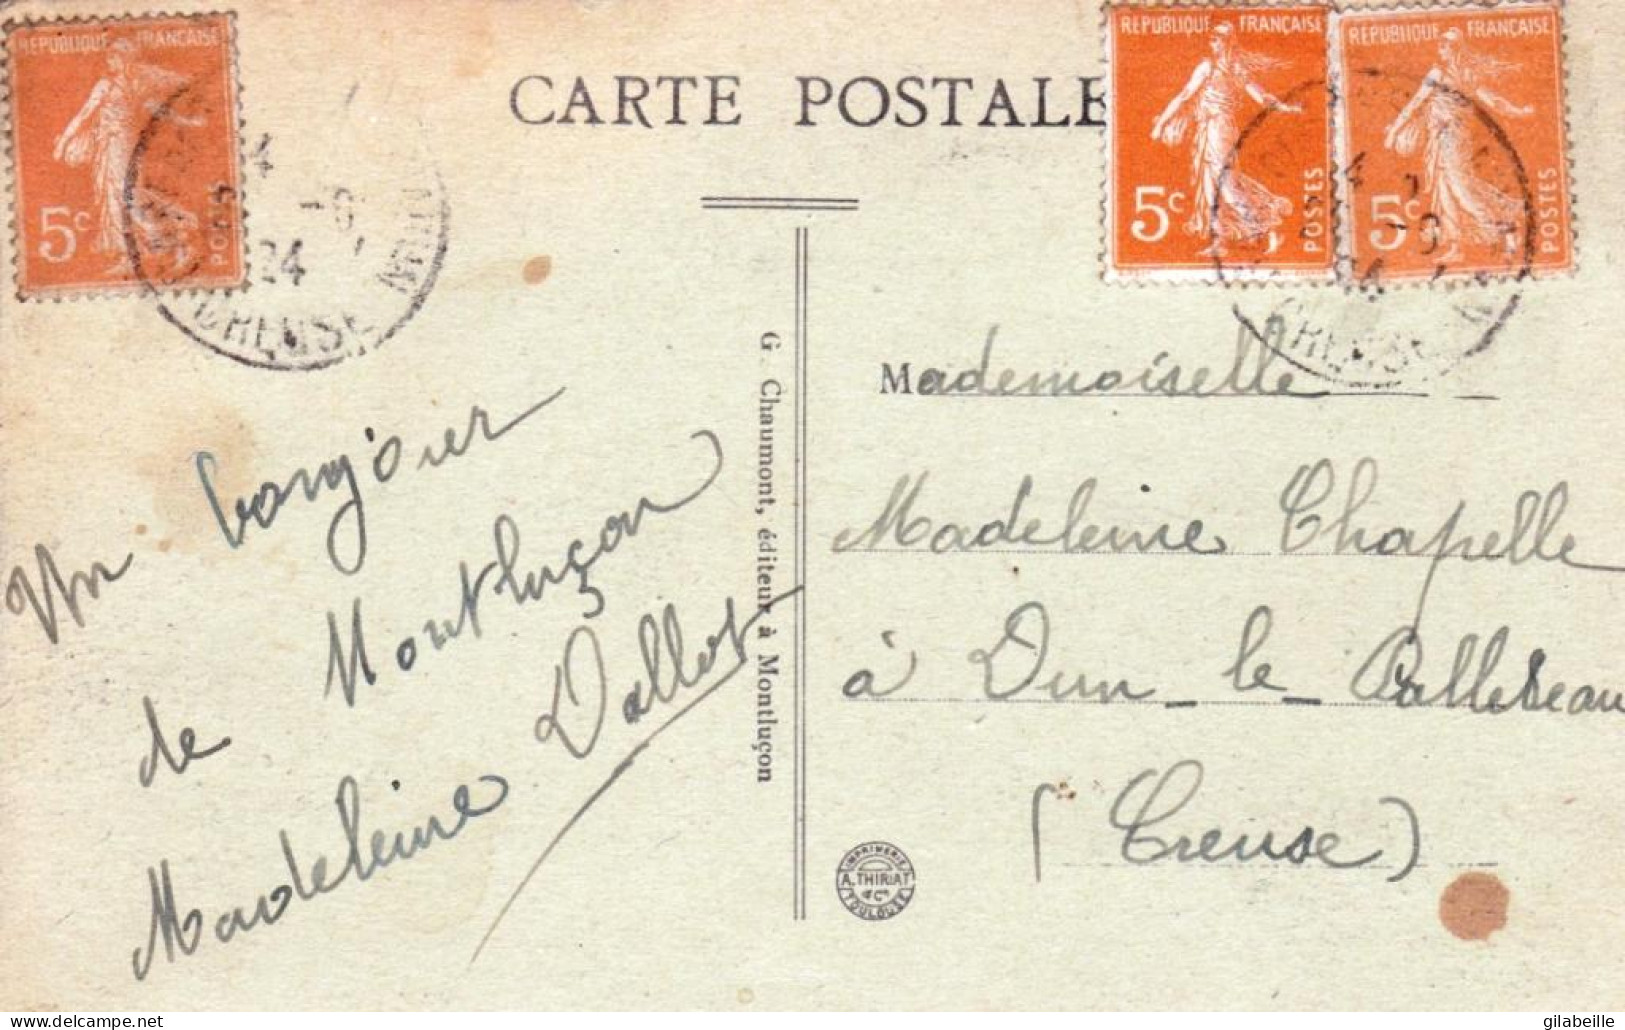 CARTE POSTALE
REPUBLIQUE FRANÇAISE
5c
POSTES
REPUBLIQUE FRANÇAISE
5c
POSTES
REPUBLIQUE FRANÇAISE
5c
POSTES
24
CREUSE
CREUSE
Un bonjour
de Montluçon
Madeleine Dallot
G. Chaumont, éditeur à Montluçon
Mademoiselle
Madeleine Chapelle
à Dun-le-Palleteau
(Creuse)
IMPRIMERIE
A. THIRIAT
TOULOUSE
delcampe.net
gilabeille